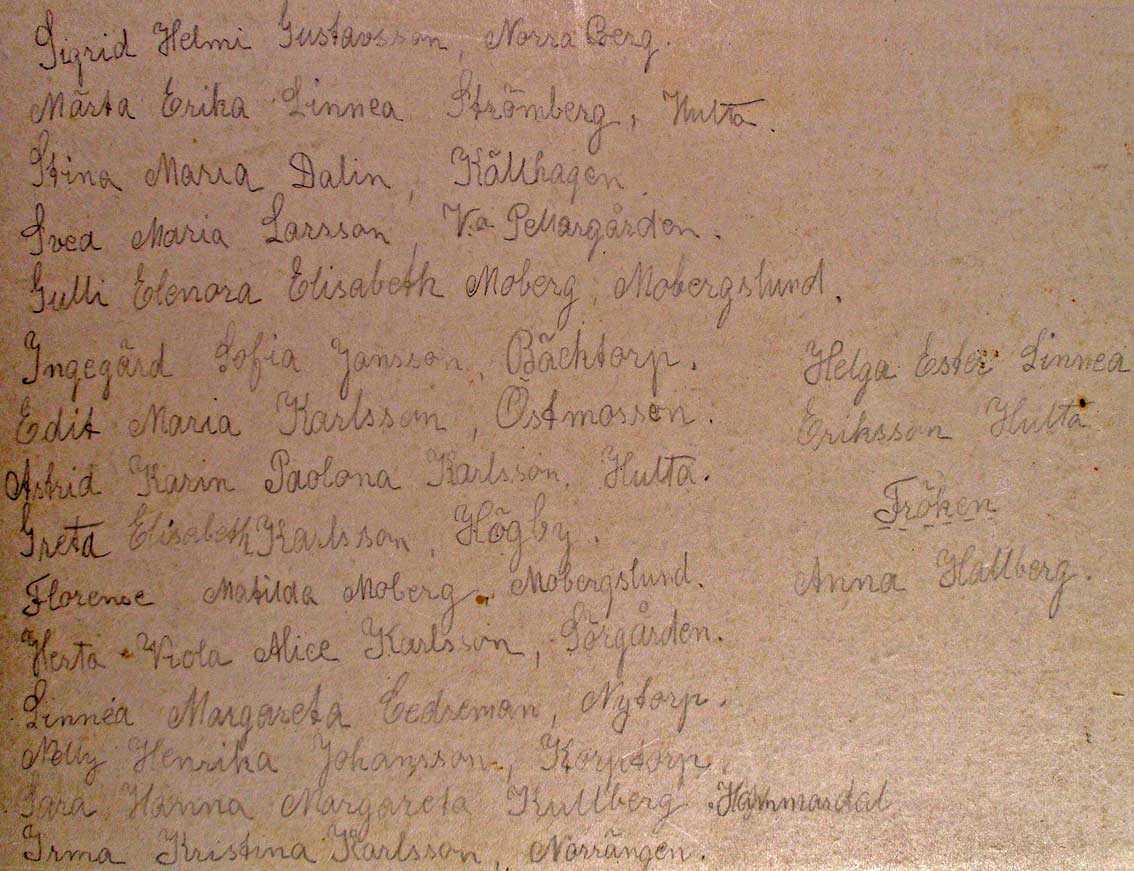 Sigrid Helmi Gustavsson, Norra Berg.
Märta Erika Linnea Strömberg, Hulta.
Stina Maria Dalin, Källhagen.
Svea Maria Larsson, V:a Pellargården.
Gulli Elenora Elisabeth Moberg, Mobergslund.
Ingegärd Sofia Jansson, Bäcktorp.
Edit Maria Karlsson, Östmossen.
Astrid Karin Paolona Karlsson, Hulta.
Greta Elisabeth Karlsson, Högby.
Florense Matilda Moberg, Mobergslund.
Herta Viola Alice Karlsson, Sörgården.
Linnéa Margareta Cedreman, Nytorp.
Nelly Henrika Johansson, Korptorp.
Sara Hanna Margareta Kullberg Hammardal
Irma Kristina Karlsson, Norrängen.
Helga Ester Linnea
Eriksson Hulta
Fröken
Anna Hallberg.